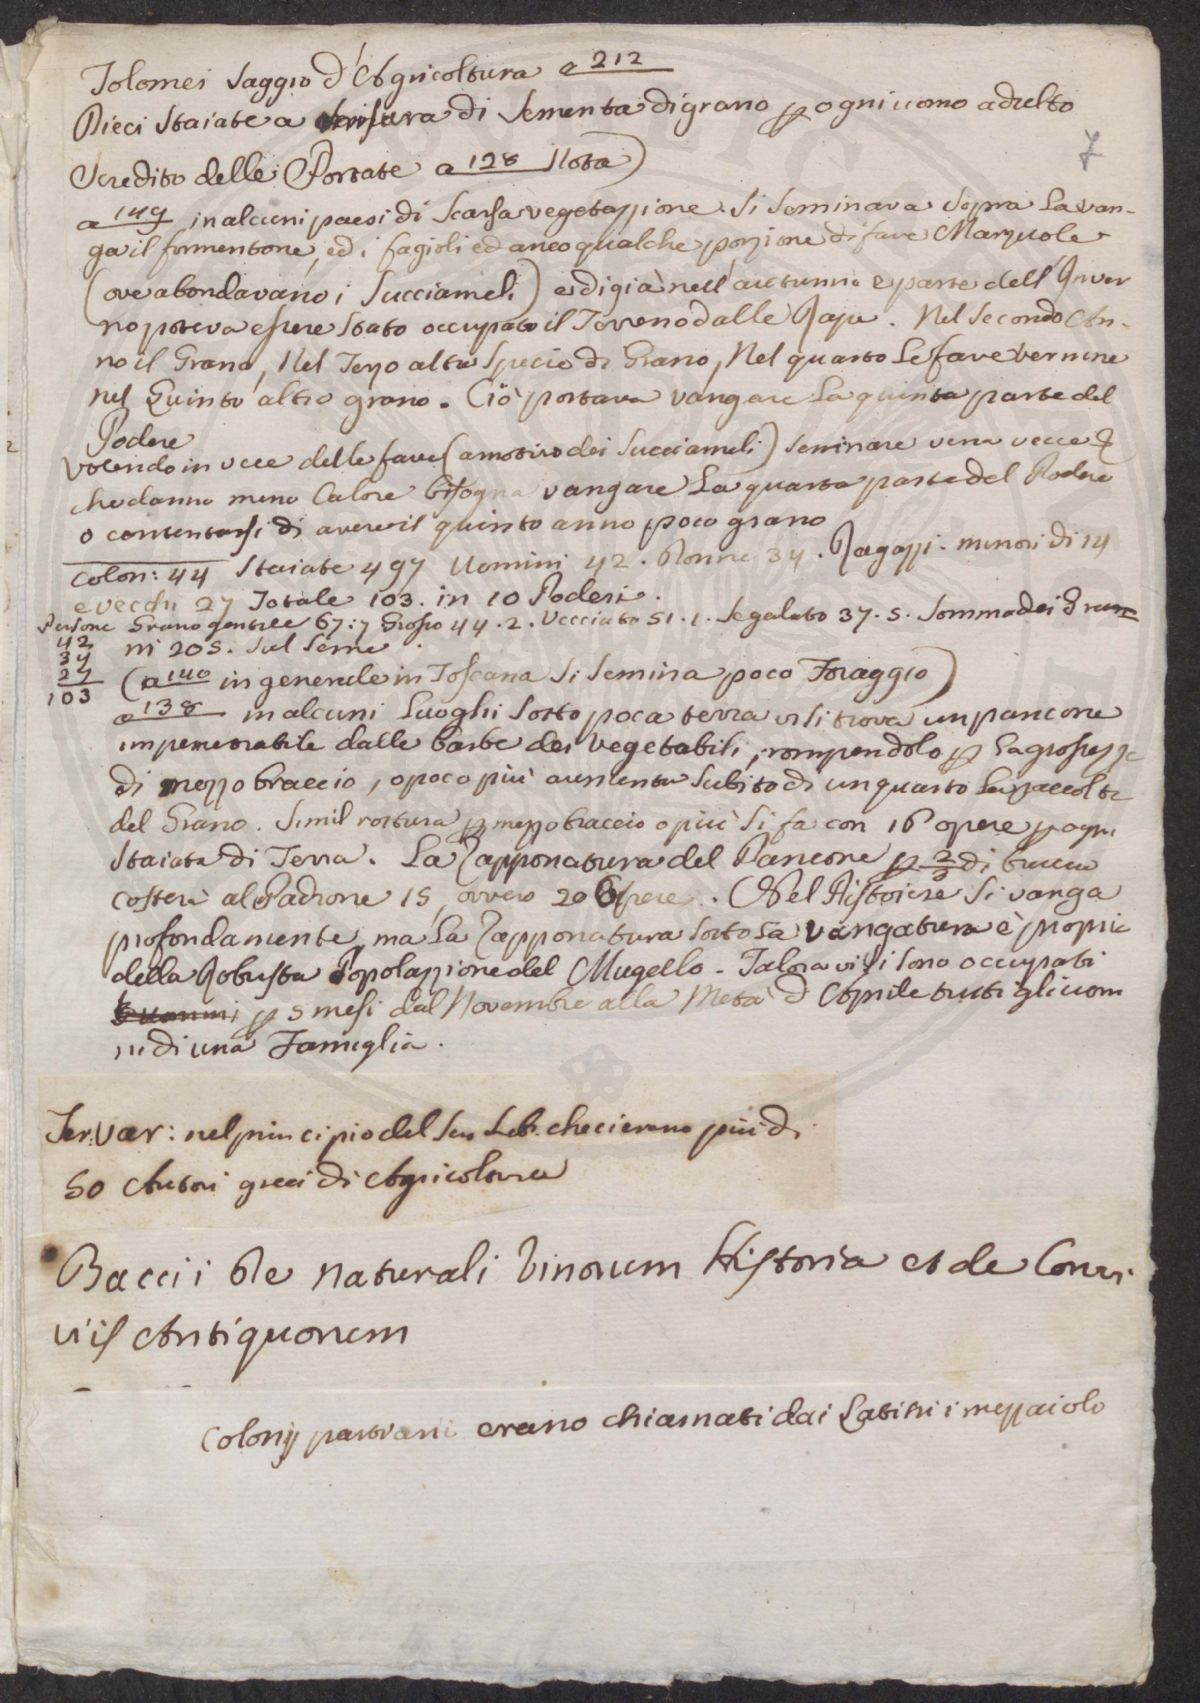 Tolomei Saggio d'Agricoltura a 212
Dieci Staiate a di Sementa di grano p ogni uomo adulto
7
Scredito delle Portate a 128 Nota)
a 149 in alcuni paesi di Scarsa vegetazzione. Si Seminava Sopra La van-
ga il formentone, ed i fagioli ed anco qualche porzione di fave Marzuole
(ove abondavano i Succiameli) e di già nell'autunno e parte dell'Inver
no poteva essere Stato occupato il Terreno dalle Rape. Nel Secondo An-
no il Grano, Nel Terzo altra Specie di Grano, Nel quarto Le fave vernine
nel Quinto altro grano. Ciò portava vangare La quinta parte del
Podere
Volendo in vece delle fave (a motivo dei Succiameli) Seminare vena vecce &
che danno meno Calore bisogna vangare La quarta parte del Podere
o contentarsi di avere il quinto anno poco grano
Colon: 44 Staiate 497 Uomini 42. Donne 34. Ragazzi minori di 14
e vecchi 27 Totale 103. in 10 Poderi.
Persone Grano gentile 67:7 Grosso 44.2. Vecciato 51.1. Segalato 37.5. Somma dei Gran
42 ni 205. Sul Seme.
34
27 (a 140 in generale in Toscana Si Semina poco Foraggio)
103
a 138 in alcuni Luoghi Sotto poca terra vi si trova un pancone
impenetrabile dalle barbe dei vegetabili, rompendolo p La grossezz
di mezzo braccio, o poco più aumenta Subito di un quarto La raccolta
del Grano. Simil rottura p mezzo braccio o più Si fa con 16 opere p ogni
Staiata di Terra. La Zapponatura del Pancone p 2/3 di braccio
costerà al Padrone 15, ovvero 20 Opere. Nel Pistoiese Si vanga
profondamente, ma La Zapponatura Sotto La vangatura è propria
della Robusta Popolazzione del Mugello - Talora vi si Sono occupati
p 5 mesi dal Novembre alla Metà d'Aprile tutti gli uomi
ni di una Famiglia.
Ter: Var: nel principio del Suo Lib. che ci erano più di
50 Autori greci di Agricoltura
Baccii De naturali Vinorum Historia et de Convi
viis Antiquorum
Colonij partiarii erano chiamati dai Latini i mezzaiolo